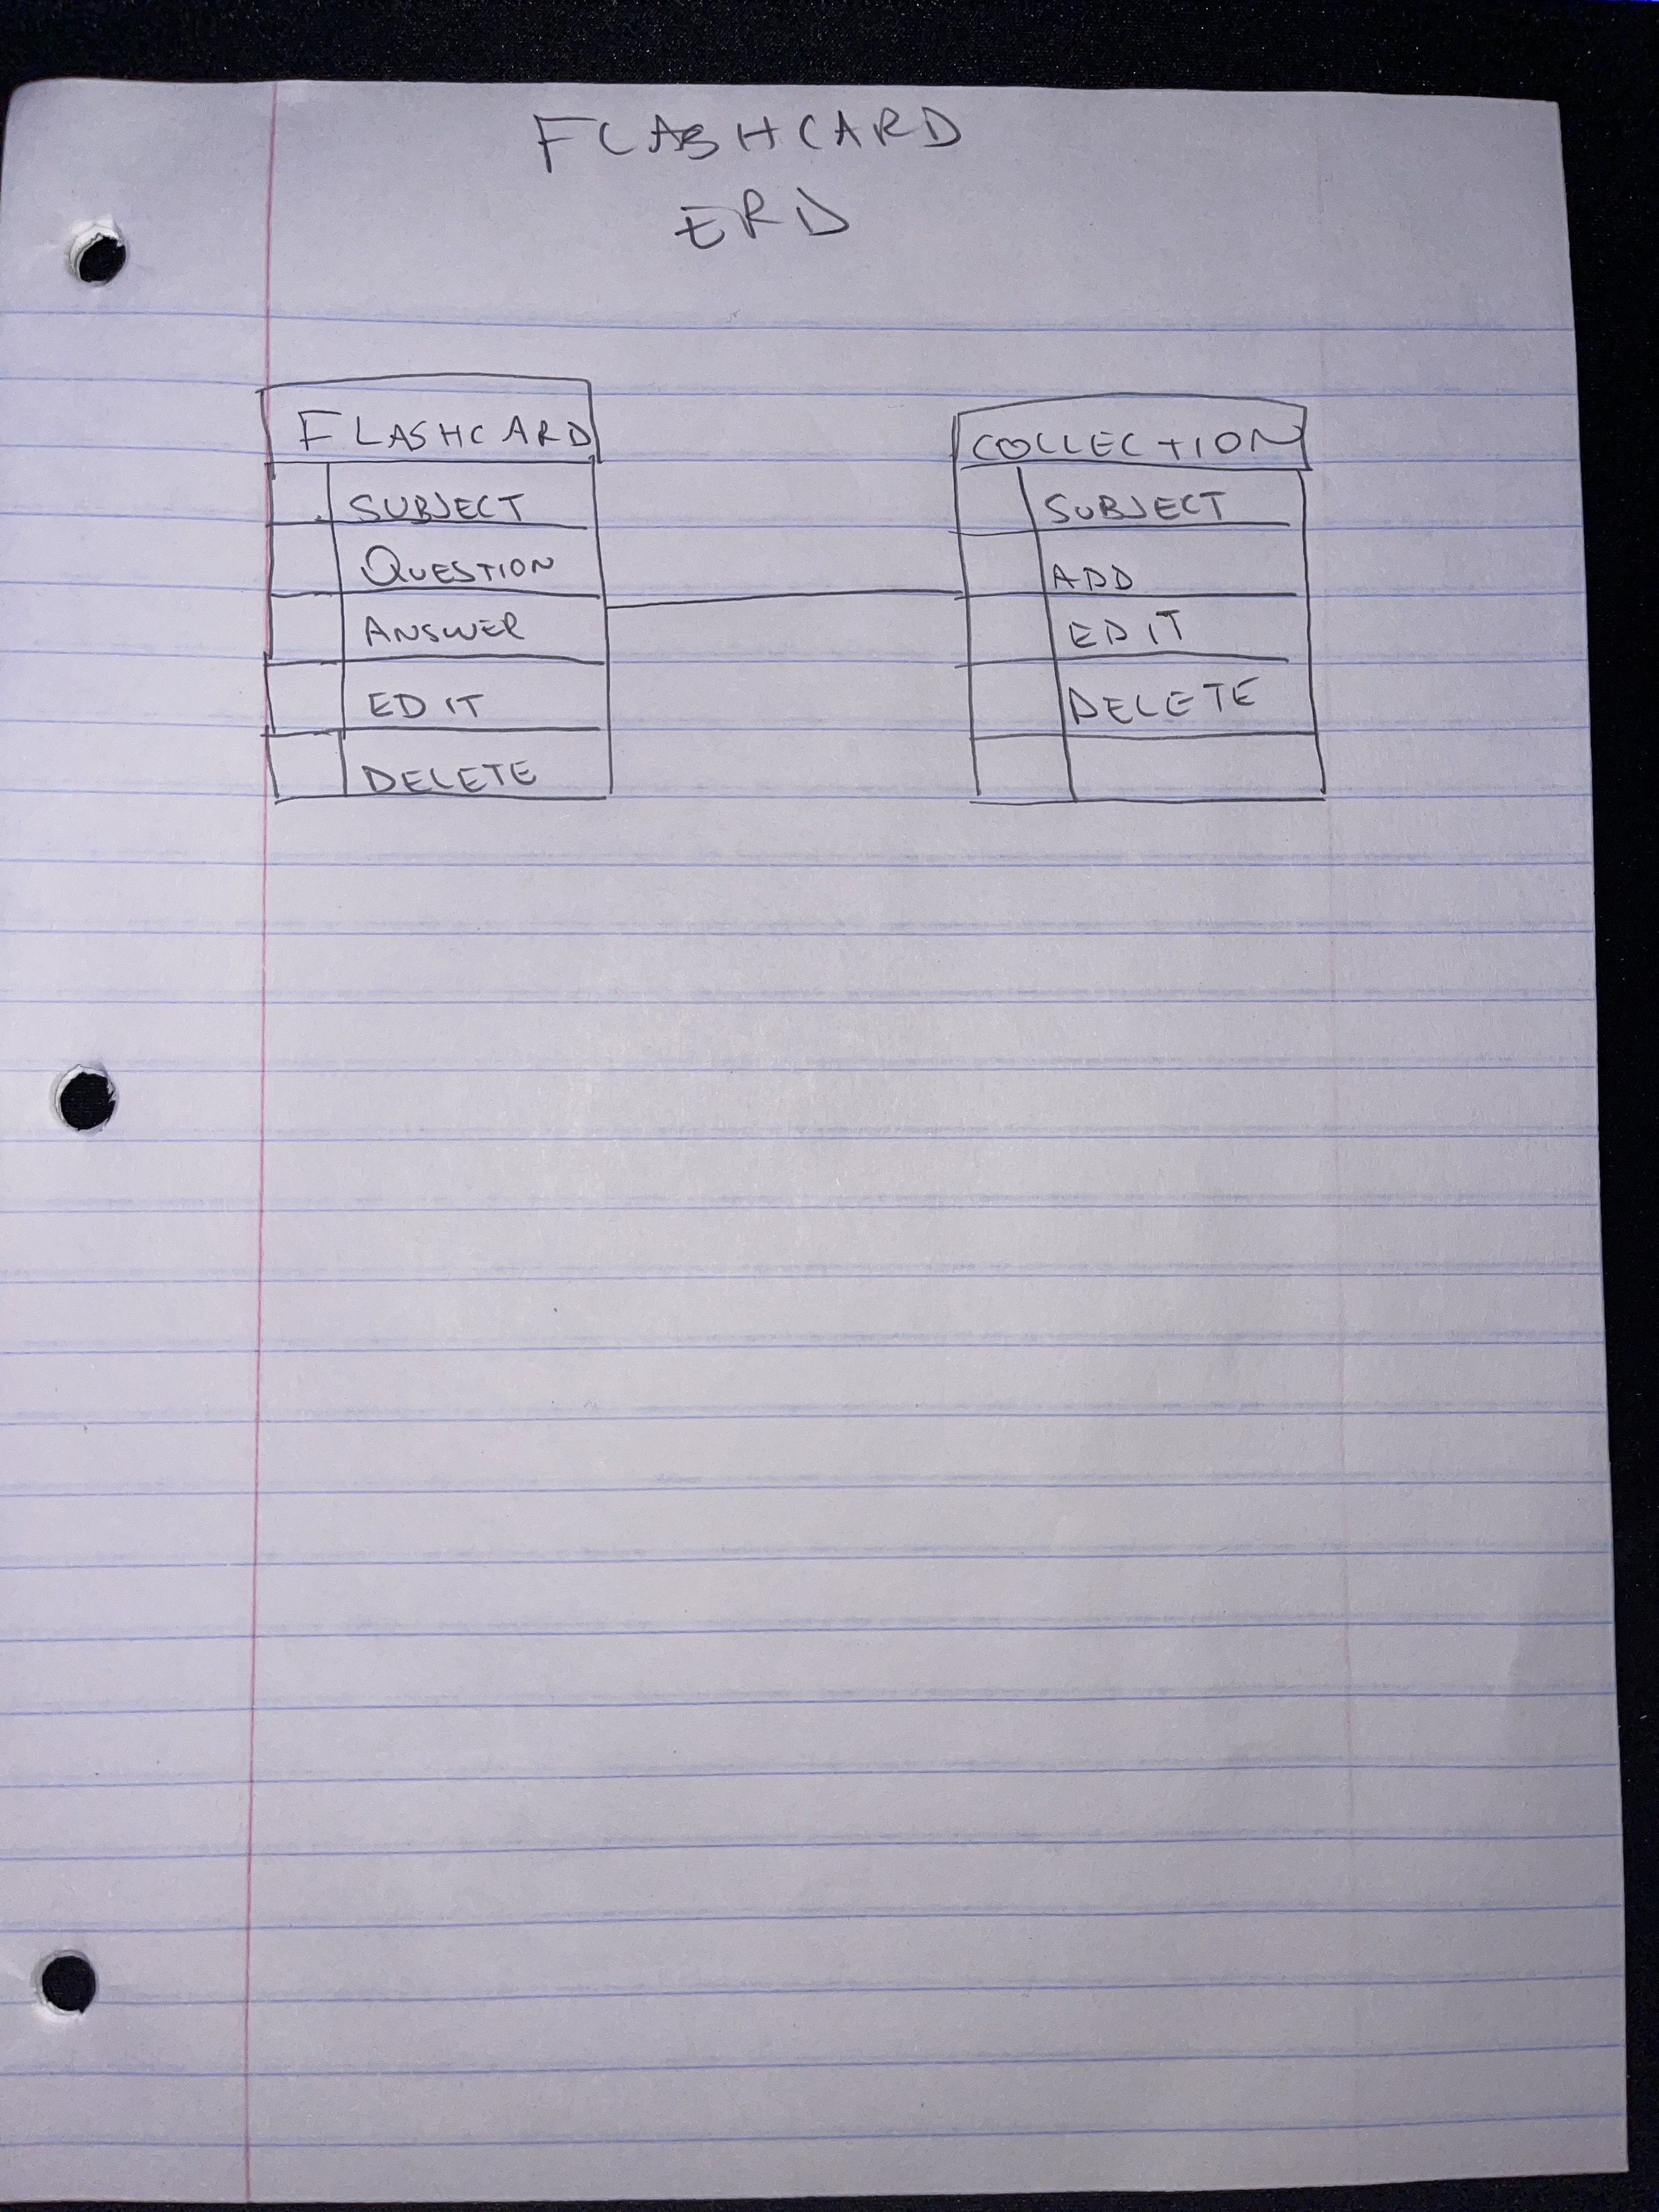 FLASHCARD
ERD
FLASHCARD
SUBJECT
QUESTION
ANSWER
EDIT
DELETE
COLLECTION
SUBJECT
ADD
EDIT
DELETE